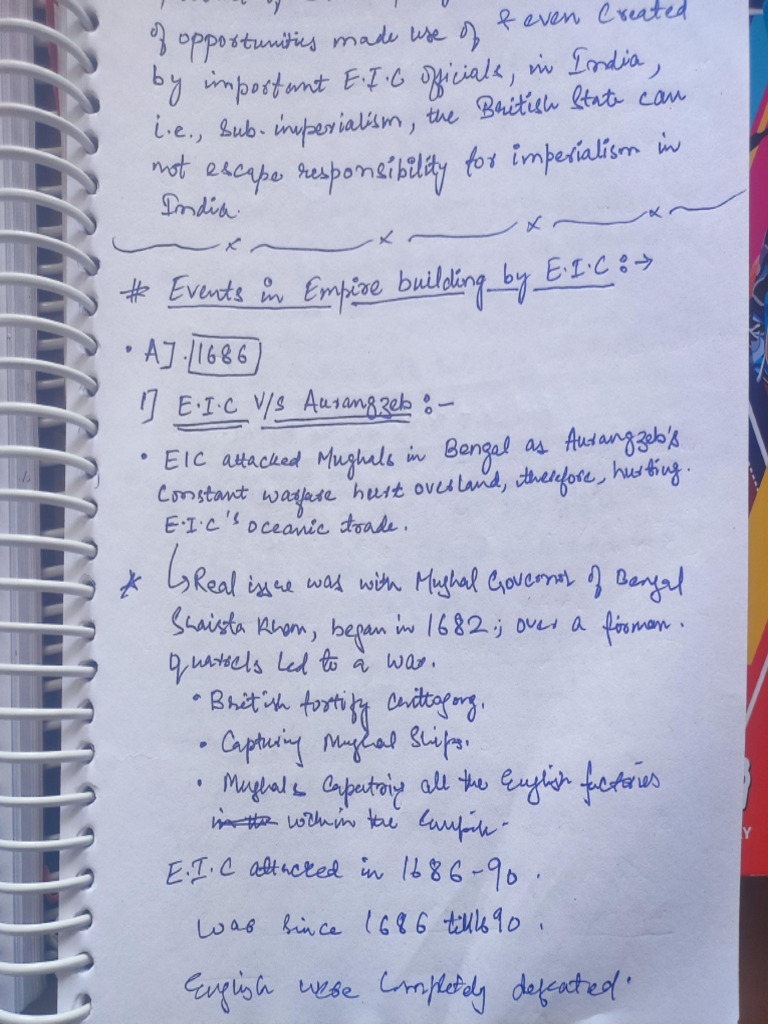 of opportunities made use of & even Created
by important E.I.C officials, in India,
i.e., Sub-imperialism, the British State can
not escape responsibility for imperialism in
India.
# Events in Empire building by E.I.C :→
• A]. 1686
1] E.I.C V/S Aurangzeb :-
• EIC attacked Mughals in Bengal as Aurangzeb's
Constant warfare hurt overland, therefore, hurting.
E.I.C's oceanic trade.
* ↳ Real issue was with Mughal Governor of Bengal
Shaista Khan, began in 1682; over a firman.
quarrels led to a war.
• British fortify Chittagong.
• Capturing Mughal Ships.
• Mughals Capturing all the English factories
within the Empire.
E.I.C attacked in 1686-90.
War since 1686 till 1690.
English were Completely defeated.
Y